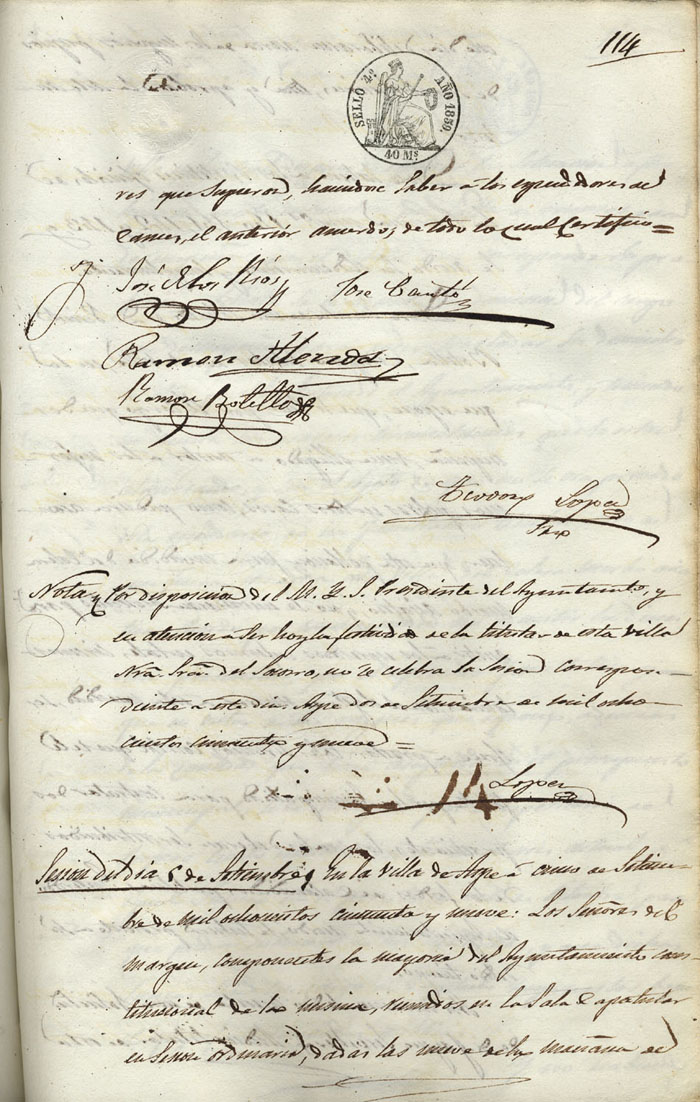 114
SELLO 4º AÑO 1859.
40 Ms.
res que supieron, haciendose saber a los espendedores de
carnes, el anterior acuerdo; de todo lo cual certifico=
José de los Rios José Cantó
Ramon Alenda
Ramon Botella
Teodoro Lopez
Nota Por disposicion del M. Y. S. Presidente del Ayuntamto, y
en atencion a ser hoy la festividad de la titular de esta villa
Nra. Sra. del Socorro, no se celebra la sesion correspon-
diente a este dia. Aspe dos de Setiembre de mil ocho-
cientos cincuenta y nueve=
114 Lopez
Sesion del dia 5 de Setiembre, En la villa de Aspe á cinco de Setiem-
bre de mil ochocientos cincuenta y nueve: Los Señores del
margen, componentes la mayoria del Ayuntamiento cons-
titucional de la misma, reunidos en la Sala Capitular
en Sesion ordinaria, dadas las nueve de la mañana de